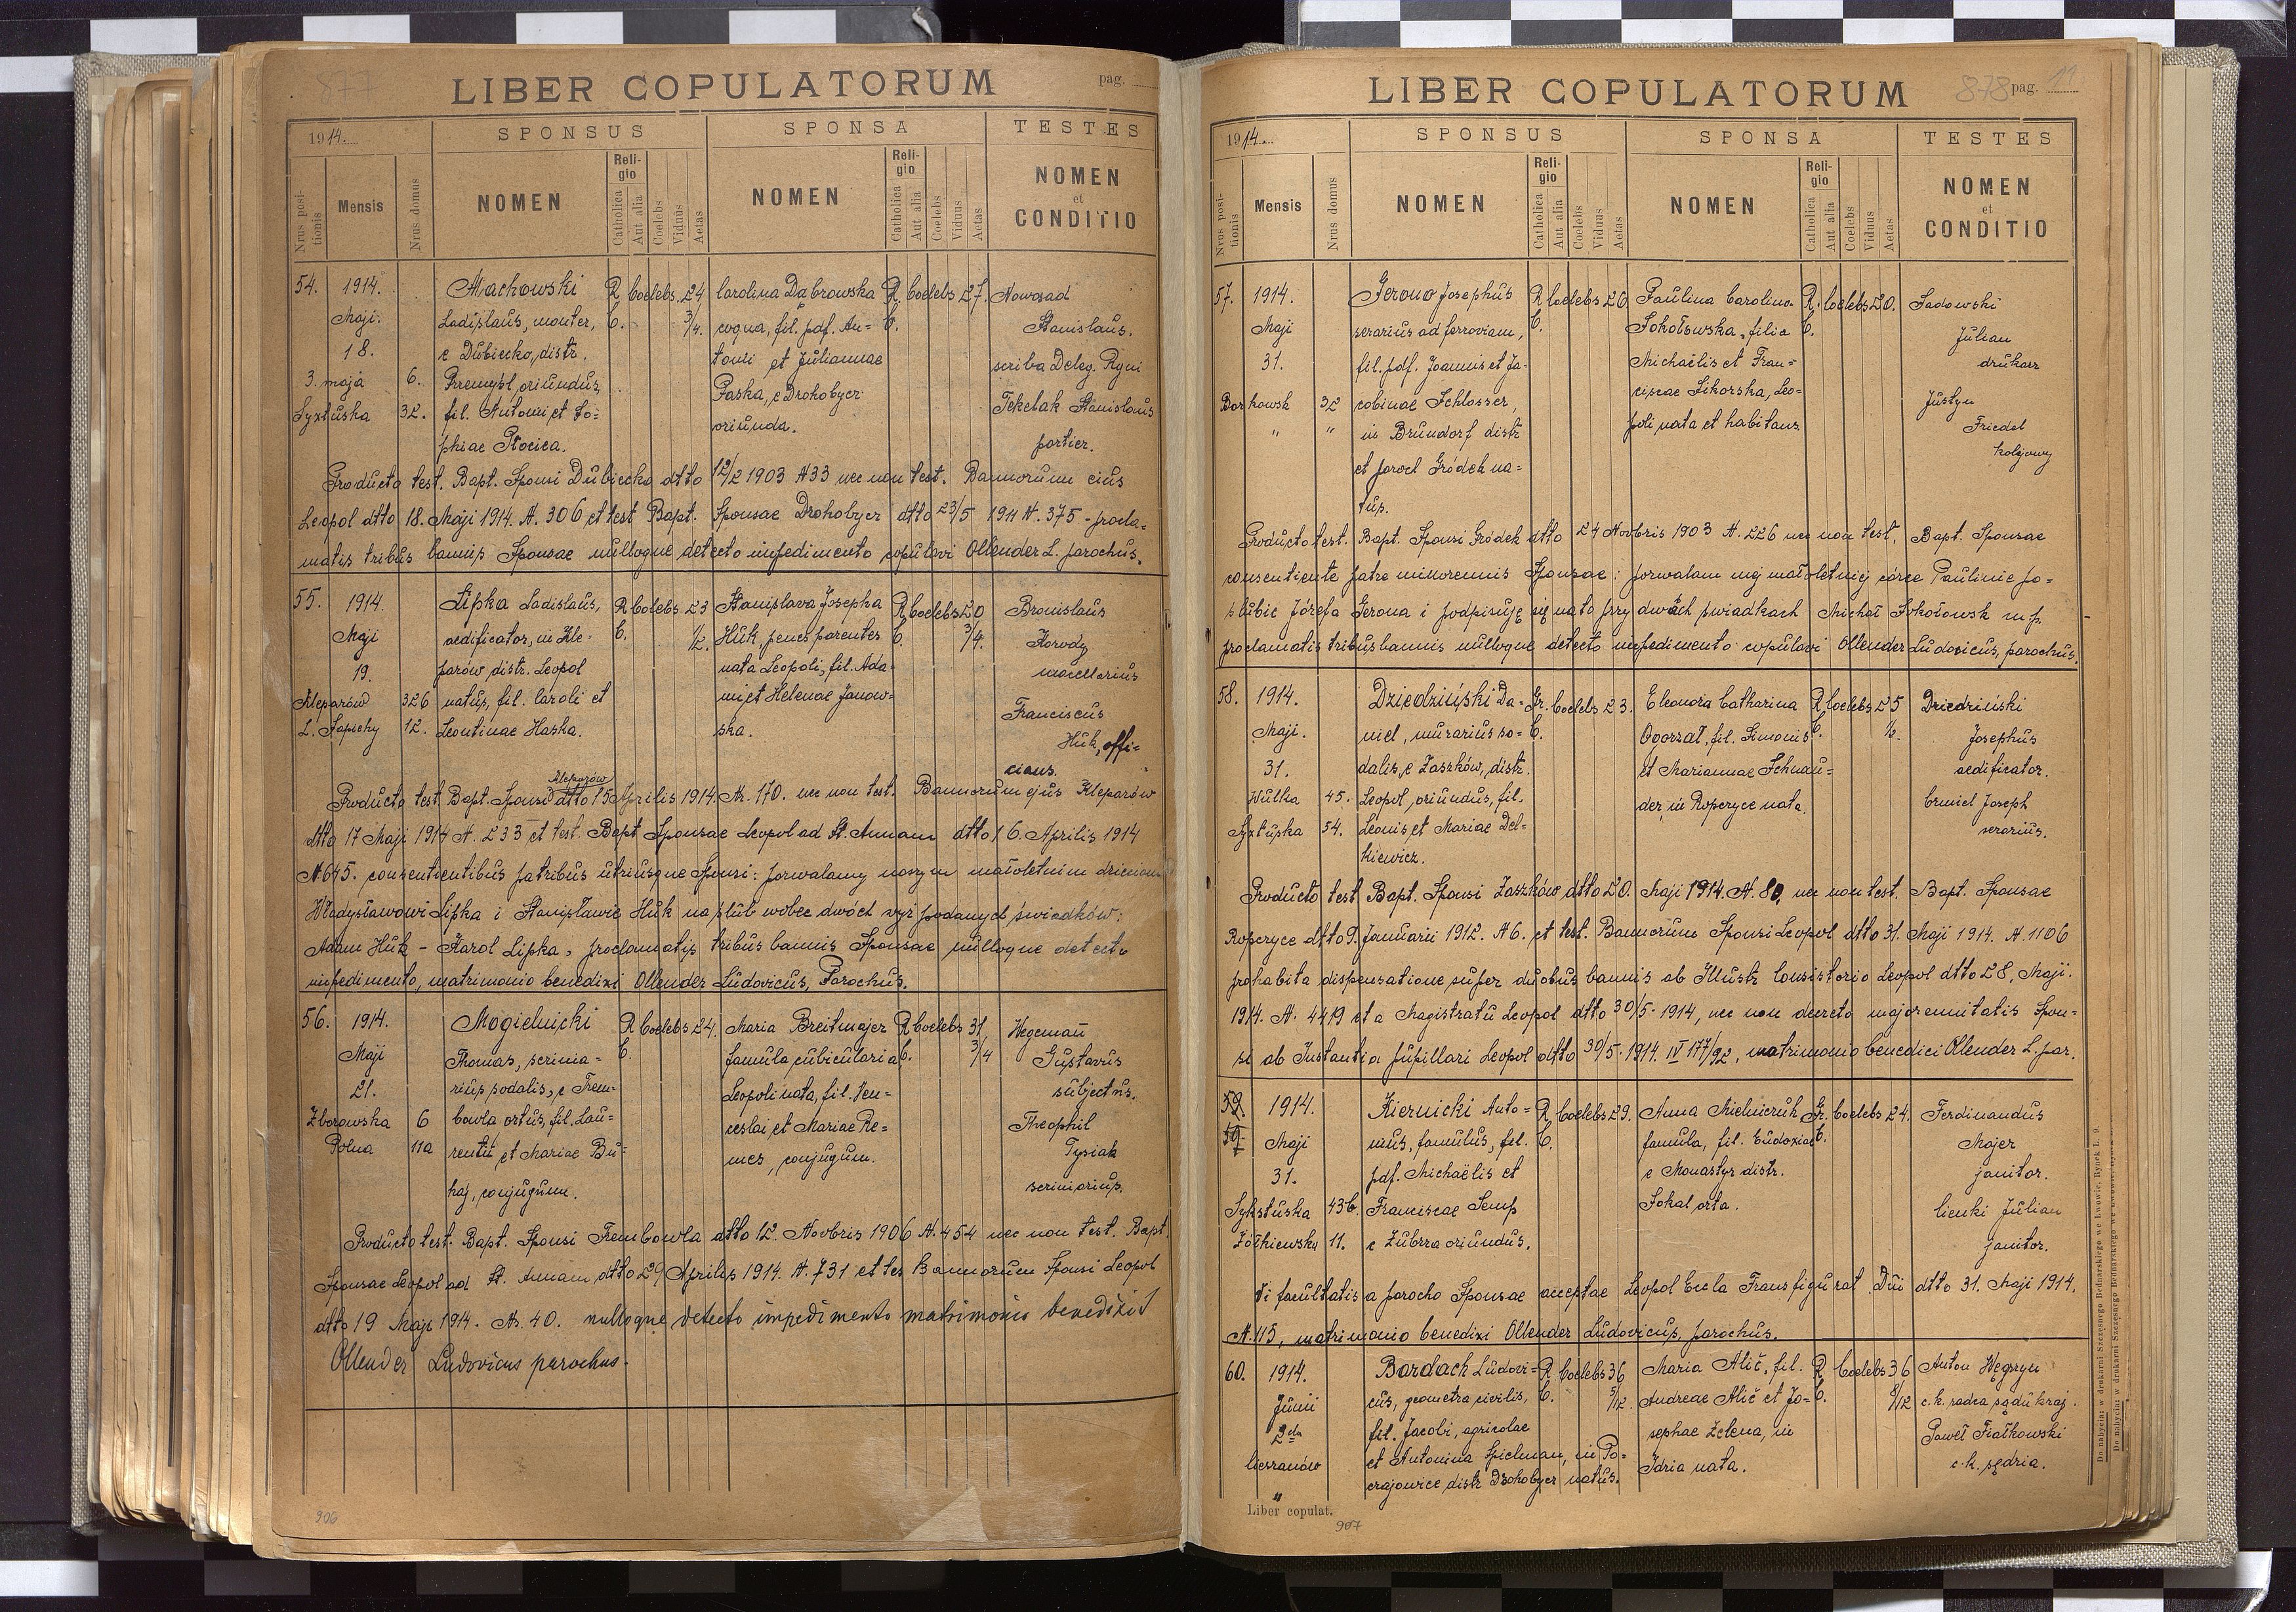 877
LIBER COPULATORUM pag.
1914.
SPONSUS SPONSA TESTES
Nrus positionis Mensis Nrus domus NOMEN Religio Catholica Aut alia Coelebs Viduus Aetas NOMEN Religio Catholica Aut alia Coelebs Viduus Aetas NOMEN et CONDITIO
54. 1914. Machowski R. Coelebs 24 Carolina Dąbrowska R. Coelebs 27. Nowosad
Maji. Ladislaus, monter, C. 3/4. coqua, fil. pdf. An= C. Stanislaus.
18. e Dubiecko, distr. tonii et Juliannae scriba Deleg. Rgni
3. maja 6. Przemyśl, oriundus, Paska, e Drohobycz Tekelak Stanislaus
Syxtuska 32. fil. Antonii et So= oriunda. portier.
phiae Płocica.
Producto test. Bapt. Sponsi Dubiecko dtto 12/2 1903 N33 nec non test. Bannorum eius
Leopol dtto 18. Maji 1914. N. 306 et test Bapt. Sponsae Drohobycz dtto 23/5 1911 N. 375 - procla=
matis tribus bannis Sponsae nulloque detecto impedimento copulavi Ollender L. parochus.
55. 1914. Lipka Ladislaus, R. Colebs 23 Stanislava Josepha R. Coelebs 20 Bronislaus
Maji aedificator, in Kle= C. 1/2. Huk, penes parentes C. 3/4. Korody
19. parów distr. Leopol nata Leopoli, fil. Ada= macellarius
Kleparów 326 natus, fil. Caroli et mi et Helenae Janow= Franciscus
L. Sapiehy 12. Leontinae Haska. ska. Huk, offi=
cians.
Producto test. Bapt. Sponsi Kleparów dtto 15 Aprilis 1914. Nr. 170. nec non test. Bannorum ejus Kleparów
dtto 17 Maji 1914 N. 233 et test. Bapt. Sponsae Leopol ad St. Annam dtto 16. Aprilis 1914
N. 645. consentientibus patribus utriusque Sponsi: pozwalamy naszym małoletnim dzieciom
Władysławowi Lipka i Stanisławie Huk na ślub wobec dwóch wyż podanych świadków:
Adam Huk - Karol Lipka, proclamatis tribus bannis Sponsae nulloque detecto
impedimento, matrimonio benedixi Ollender Ludovicus, Parochus.
56. 1914. Mogielnicki R. Coelebs 24. Maria Breitmajer R. Coelebs 31 Wegemann
Maji Thomas, scrinia= C. famula cubicularia C. 3/4 Gustavus
21. rius sodalis, e Trem= Leopoli nata, fil. Ven= subjectus.
Zborowska 6 bowla ortus, fil. Lau= ceslai et Mariae Re= Theophil
Polna 11a rentii et Mariae Bu= mes, conjugum. Tysiak
haj, conjugum. scriniarius.
Producto test. Bapt. Sponsi Trembowla dtto 12. Novbris 1906 N. 454 nec non test. Bapt.
Sponsae Leopol ad St. Annam dtto 29 Aprilis 1914. N. 731 et tes Bannorum Sponsi Leopol
dtto 19 Maji 1914. Ns. 40. nulloque detecto impedimento matrimonio benedixit
Ollender Ludovicus parochus.
906
LIBER COPULATORUM 878 pag. 19
1914.
SPONSUS SPONSA TESTES
Nrus positionis Mensis Nrus domus NOMEN Religio Catholica Aut alia Coelebs Viduus Aetas NOMEN Religio Catholica Aut alia Coelebs Viduus Aetas NOMEN et CONDITIO
57. 1914. Gerono Josephus R. Coelebs 26 Paulina Carolina R. Coelebs 20. Sadowski
Maji serarius ad ferroviam, C. Sokołowska, filia C. Julian
31. fil. pdf. Joannis et Ja= Michaëlis et Fran= drukarz
Borkowsk 32 cobinae Schlosser, ciscae Sikorska, Leo= Justyn
" " in Brundorf distr poli nata et habitans. Friedel
et paroch Gródek na= kolejowy
tus.
Producto test. Bapt. Sponsi Gródek dtto 24 Novbris 1903 N. 226 nec non test. Bapt. Sponsae
consentiente patre minorennis Sponsae: pozwalam mej małoletniej córce Paulinie po=
ślubić Józefa Gerona i podpisuję się na to przy dwóch świadkach Michał Sokołowsk mp.
proclamatis tribus bannis nulloque detecto impedimento copulavi Ollender Ludovicus, parochus.
58. 1914. Dziedziński Da= Gr. Coelebs 23. Eleonora Catharina R. Coelebs 25 Dziedziński
Maji. niel, murarius so= C. Ogorzał, fil. Simonis C. 1/2. Josephus
31. dalis, e Zaszków, distr. et Mariannae Schnau= aedificator.
Wulka 45. Leopol, oriundus, fil. der, in Ropczyce nata. Cmiel Joseph
Syxtuska 54. Leonis et Mariae Del= serarius.
kiewicz.
Producto test Bapt. Sponsi Zaszków dtto 20. Maji 1914. N. 80, nec non test. Bapt. Sponsae
Ropczyce dtto 9. Januarii 1912. N 6. et test. Bannorum Sponsi Leopol dtto 31. Maji 1914. N. 1106
prohabita dispensatione super duobus bannis ab Illustr Consistorio Leopol dtto 28, Maji.
1914. N. 4419 et a Magistratu Leopol dtto 30/5-1914, nec non decreto majorennitatis Spon=
si ab Instantia pupillari Leopol dtto 30/5. 1914. IV 177/92, matrimonio benedici Olender L. par.
59. 1914. Kiernicki Anto= R. Coelebs 29. Anna Mielniczuk Gr. Coelebs 24. Ferdinandus
Maji nius, famulus, fil. C. famula, fil. Eudoxiae C. Majer
31. pdf. Michaëlis et e Monastyr distr. janitor.
Sykstuska 43b. Franciscae Semp Sokal orta. Cienki Julian
Żółkiewska 11. e Zubrza oriundus. janitor.
Vi facultatis a parocho Sponsae acceptae Leopol Eccla Transfigurat. Dni dtto 31. Maji 1914.
N. 115, matrimonio benedixi Ollender Ludovicus, parochus.
60. 1914. Bardach Ludovi= R. Coelebs 36 Maria Alič, fil. R. Coelebs 36 Anton Węgrzyn
Junii cus, geometra civilis, C. 5/12. Andreae Alič et Jo= C. 8/12 c.k. radca sądu kraj.
2da fil. Jacobi, agricolae sephae Zelena, in Paweł Fiałkowski
Cieszanów et Antonina Spielman, in Po= Idria nata. c.k. sędzia.
" crajowice distr Drohobycz natus.
Liber copulat.
907
Do nabycia: w drukarni Szczęsnego Bednarskiego we Lwowie, Rynek L. 9.